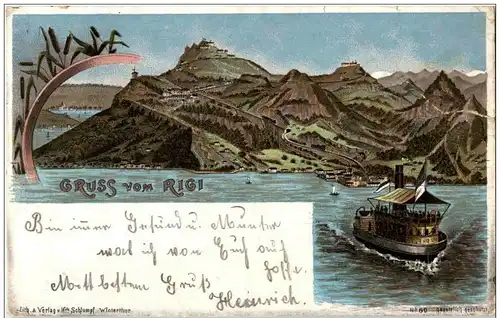 GRUSS VOM RIGI
Bin immer Gesund u. Munter
was ich von Euch auch
hoffe.
Mit bestem Gruß
Heinrich.
Lith. & Verlag v. Wth Schlumpf, Winterthur.
No 60 Gesetzlich geschützt.